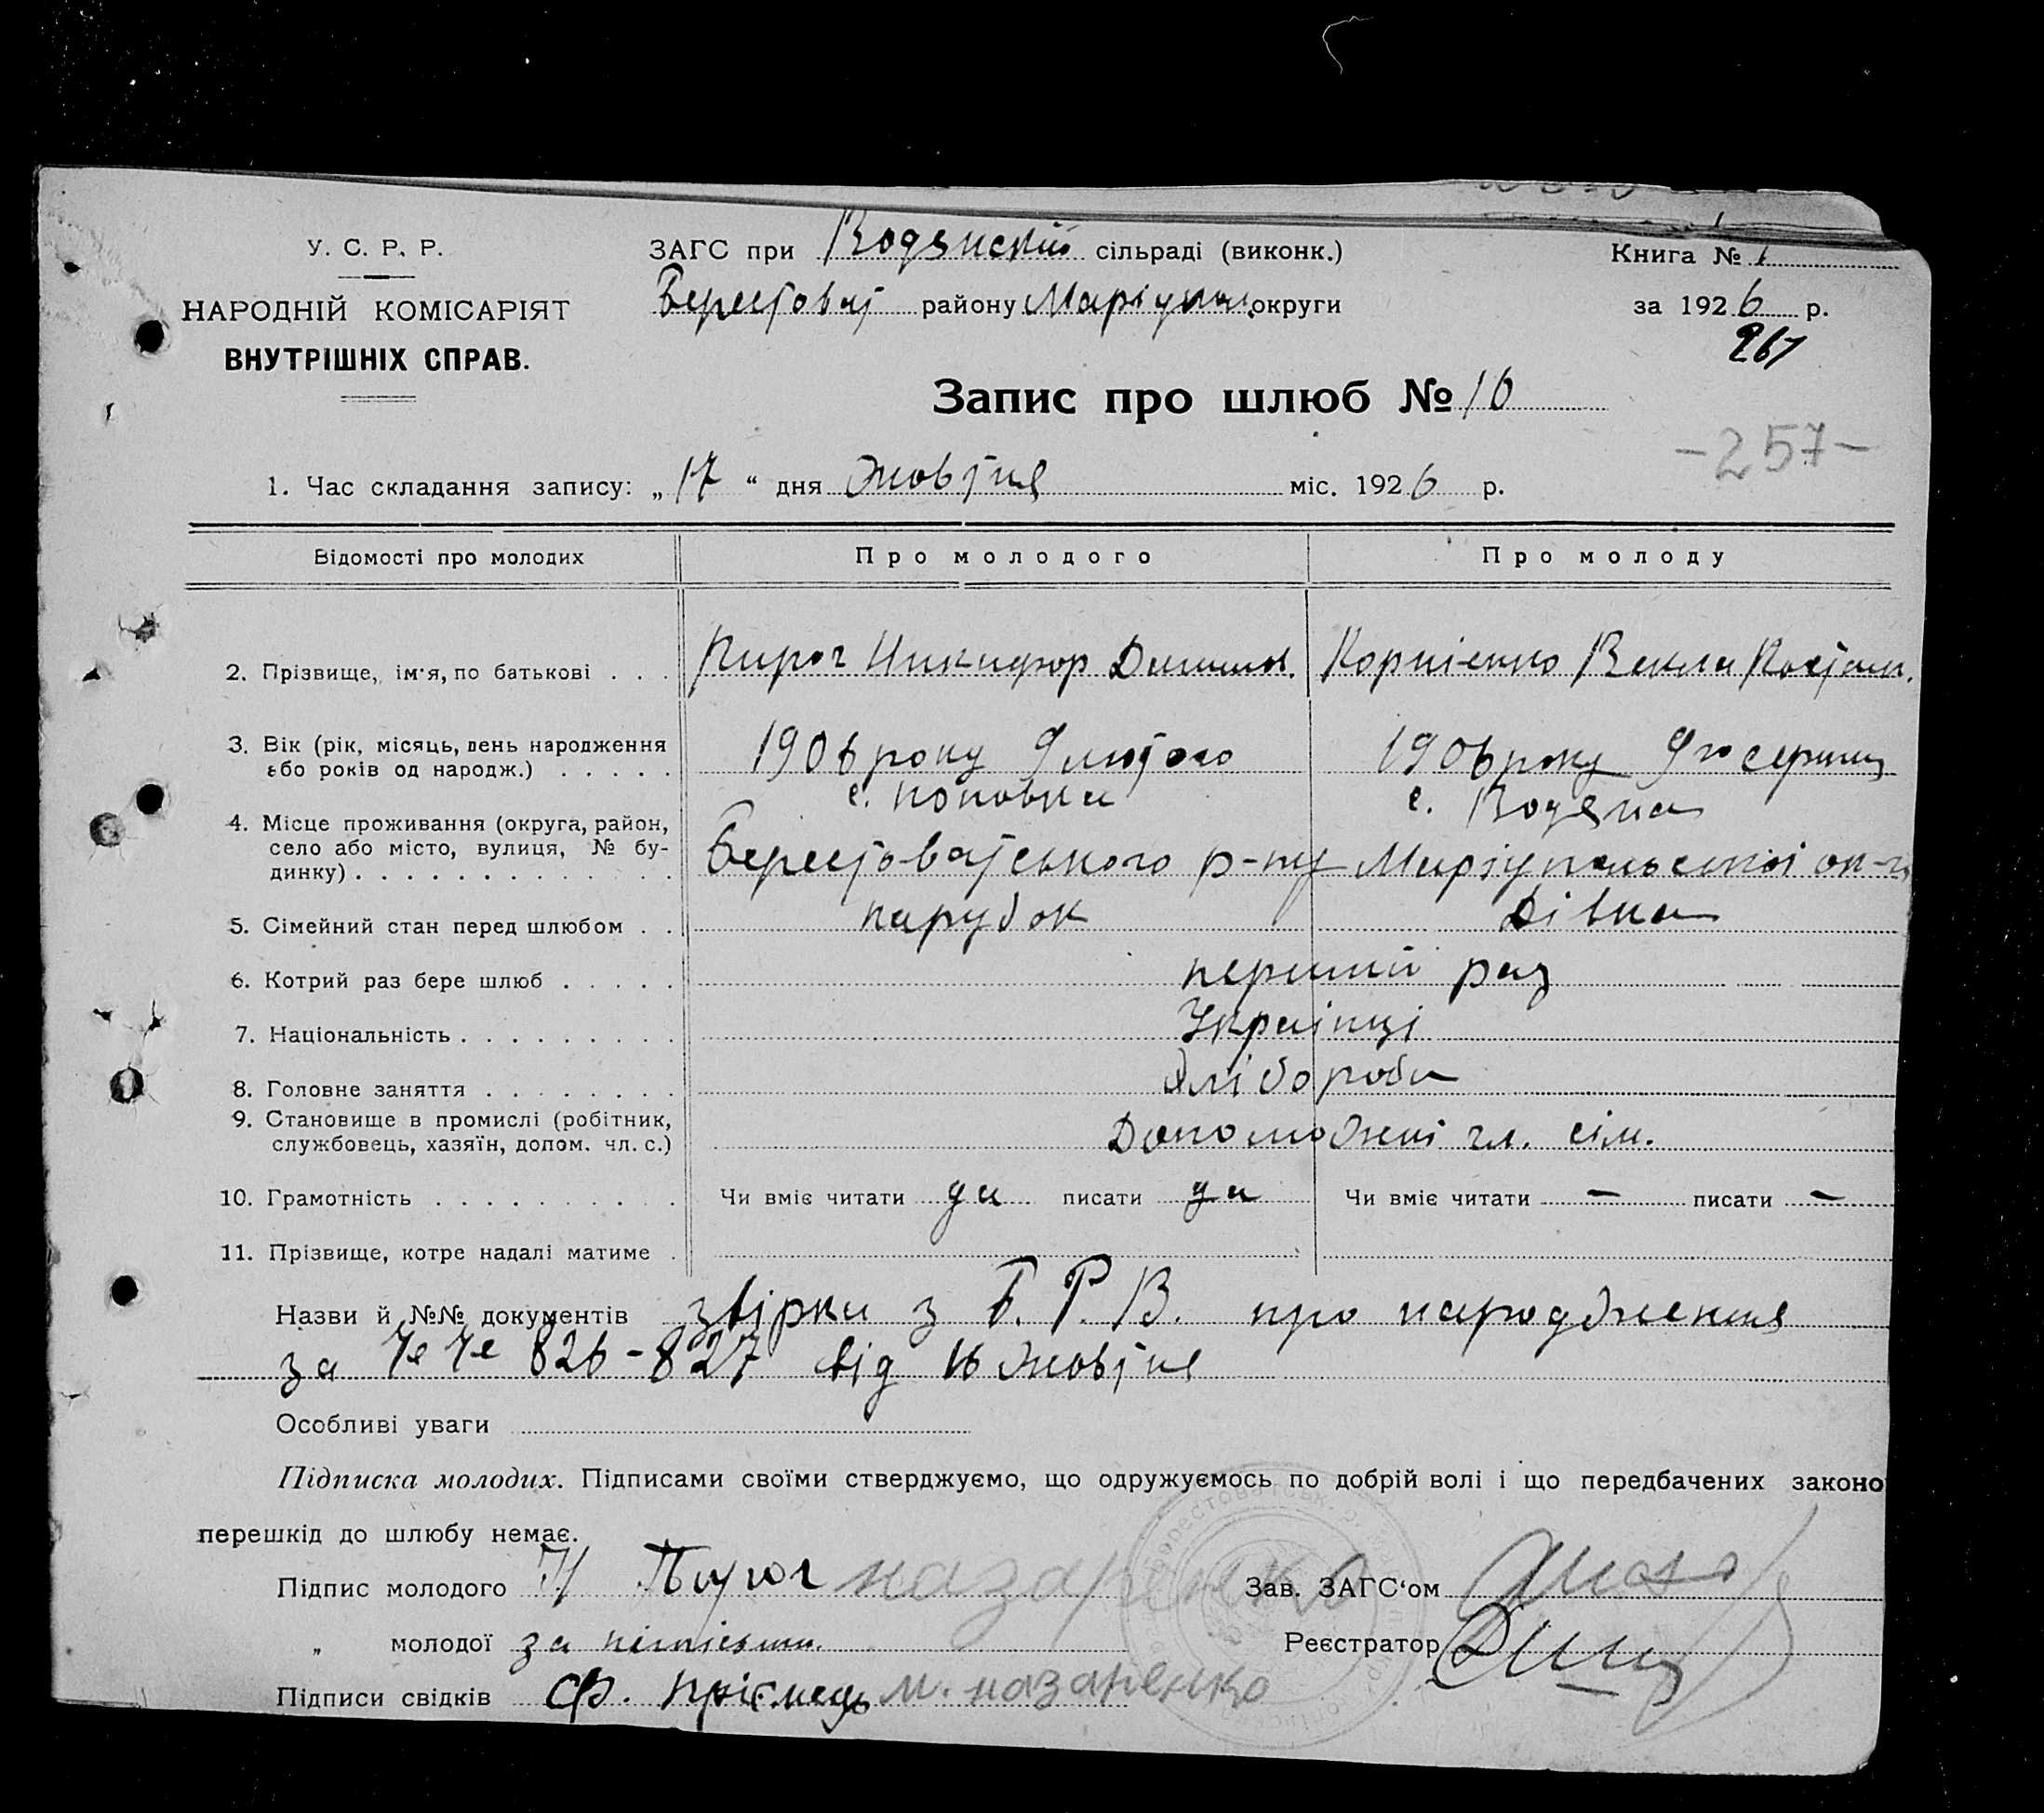 У. С. Р. Р.
НАРОДНІЙ КОМІСАРІЯТ
ВНУТРІШНІХ СПРАВ.
ЗАГС при Водянській сільраді (виконк.)
Берестоват району Маріупол. округи
Книга № 1
за 1926 р.
267
Запис про шлюб № 10
-257-
1. Час складання запису: „17“ дня Жовтня міс. 1926 р.
Відомості про молодих Про молодого Про молоду
2. Прізвище, ім'я, по батькові . . . Пирог Никифор Корнієнко Векла Костян.
3. Вік (рік, місяць, день народження або років од народж.) . . . . . 1906 року 9 лютого 1906 року 9го серпня
с. Поповка с. Водяна
4. Місце проживання (округа, район,
село або місто, вулиця, № бу-
динку) . . . . . . . . . . . . . Берестоватського р-ну Маріупольської ок-и
5. Сімейний стан перед шлюбом . . парубок Дівка
6. Котрий раз бере шлюб . . . . . перший раз
7. Національність . . . . . . . . . Українці
8. Головне заняття . . . . . . . . Хлібороби
9. Становище в промислі (робітник,
службовець, хазяїн, допом. чл. с.) Допоможні чл. сім.
10. Грамотність . . . . . . . . . . Чи вміє читати да писати да Чи вміє читати — писати —
11. Прізвище, котре надалі матиме .
Назви й №№ документів звірки з Б. Р. В. про народження
за №№ 826-827 від 16 Жовтня
Особливі уваги
Підписка молодих. Підписами своїми стверджуємо, що одружуємось по добрій волі і що передбачених законо
перешкід до шлюбу немає.
Підпис молодого Н Пирог назаренко Зав. ЗАГС'ом
„ молодої за Реєстратор
Підписи свідків Ф. Приємець м. назаренко